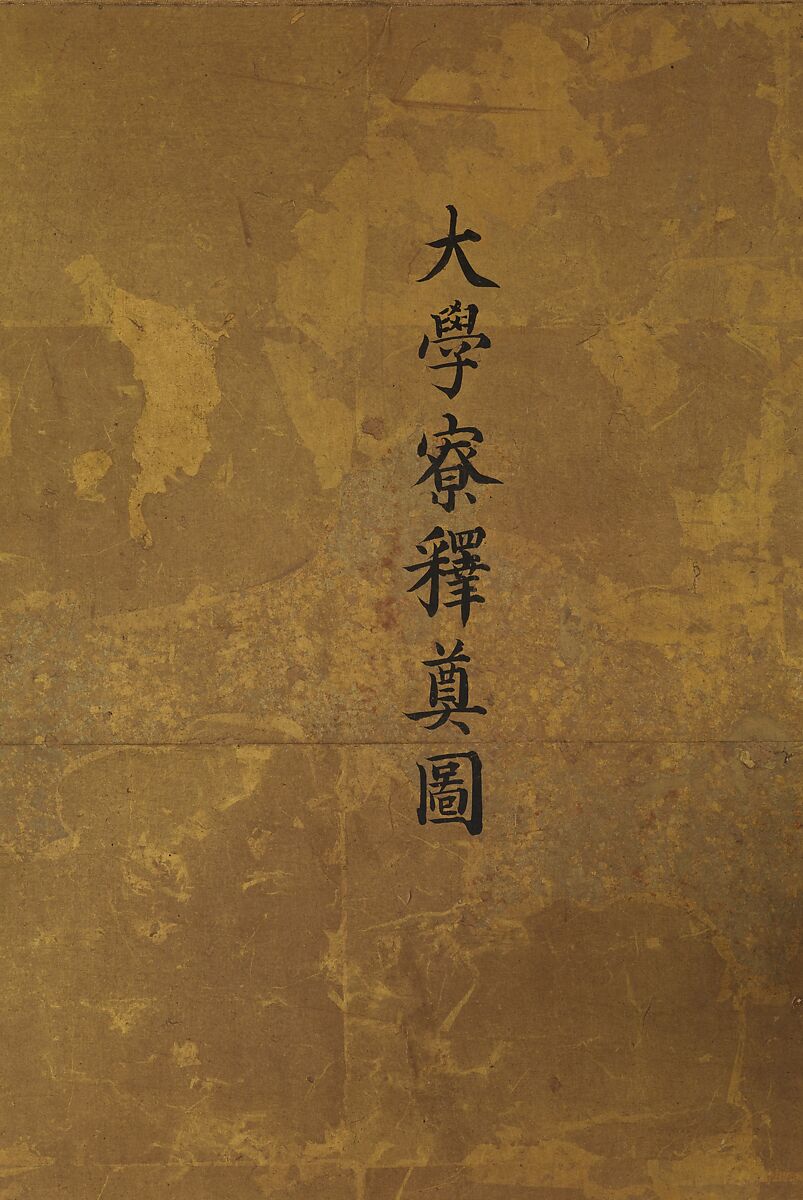 大學寮釋奠圖